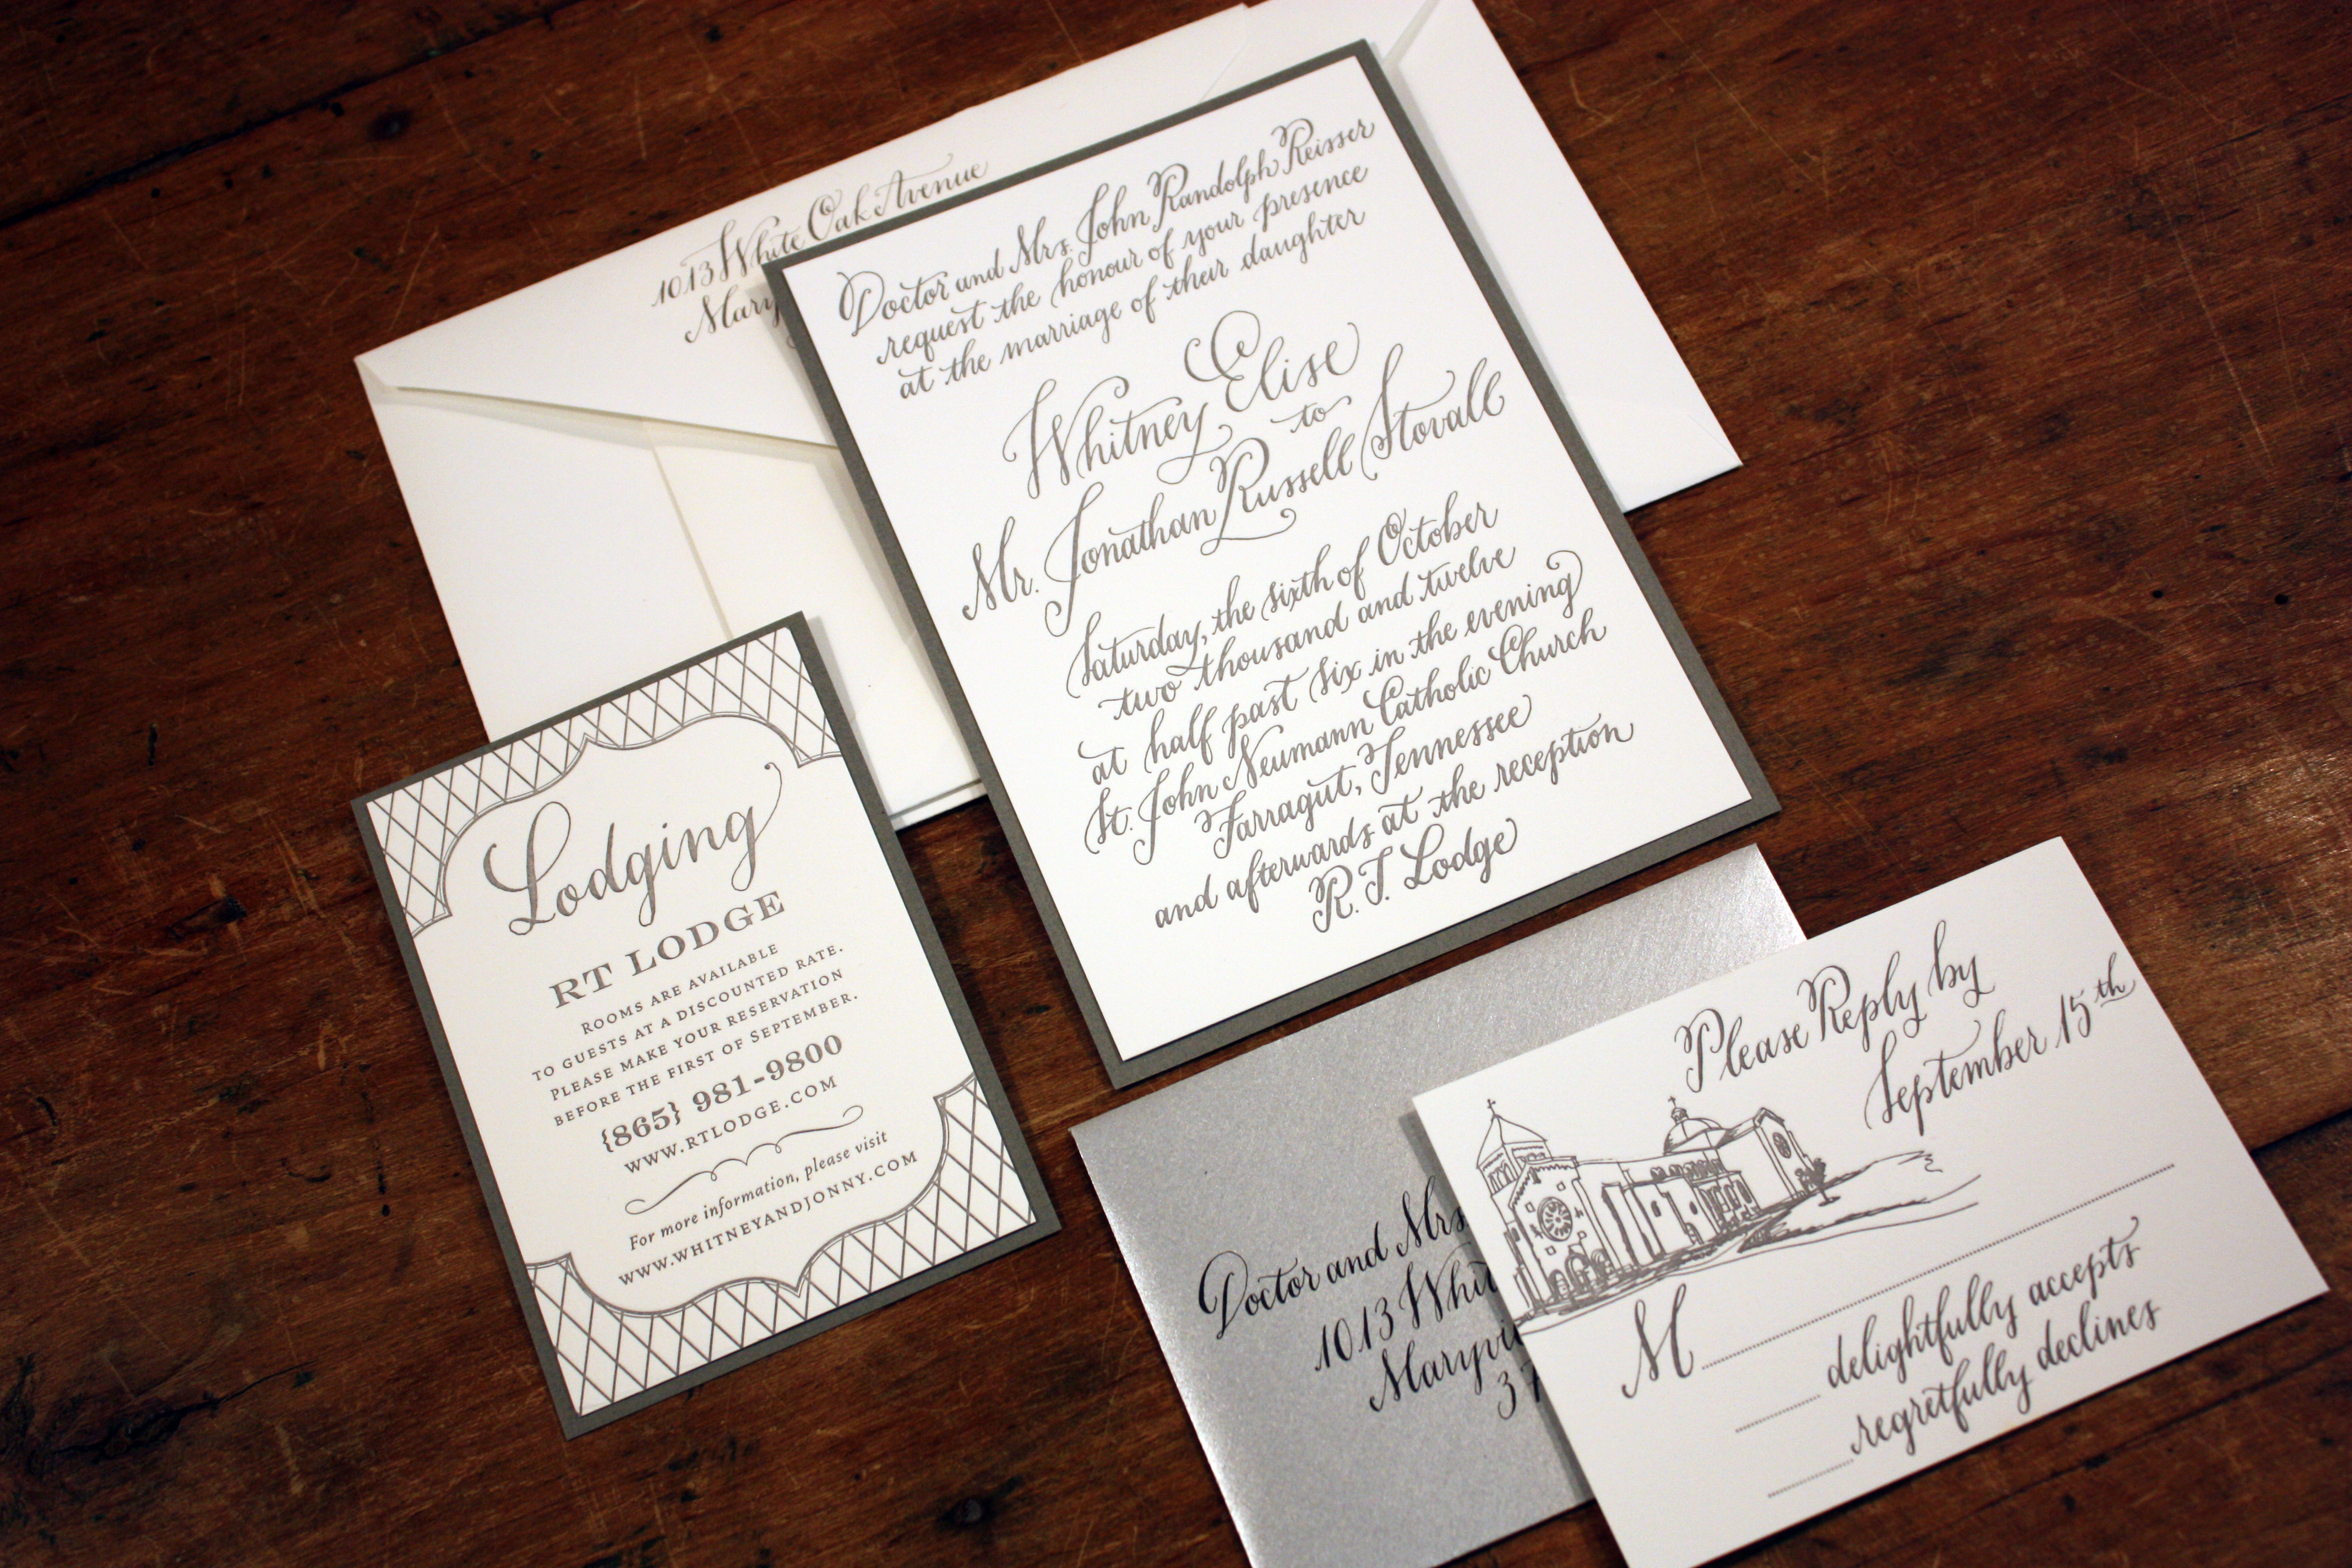 1013 White Oak Avenue
Doctor and Mrs. John Randolph Reisser
request the honour of your presence
at the marriage of their daughter
Whitney Elise
to
Mr. Jonathan Russell Stovall
Saturday, the sixth of October
two thousand and twelve
at half past six in the evening
St. John Neumann Catholic Church
Farragut, Tennessee
and afterwards at the reception
R.T. Lodge
Lodging
RT LODGE
ROOMS ARE AVAILABLE
TO GUESTS AT A DISCOUNTED RATE.
PLEASE MAKE YOUR RESERVATION
BEFORE THE FIRST OF SEPTEMBER.
{865} 981-9800
WWW.RTLODGE.COM
For more information, please visit
WWW.WHITNEYANDJONNY.COM
Doctor and Mrs
1013
Please Reply by
September 15th
M
delightfully accepts
regretfully declines